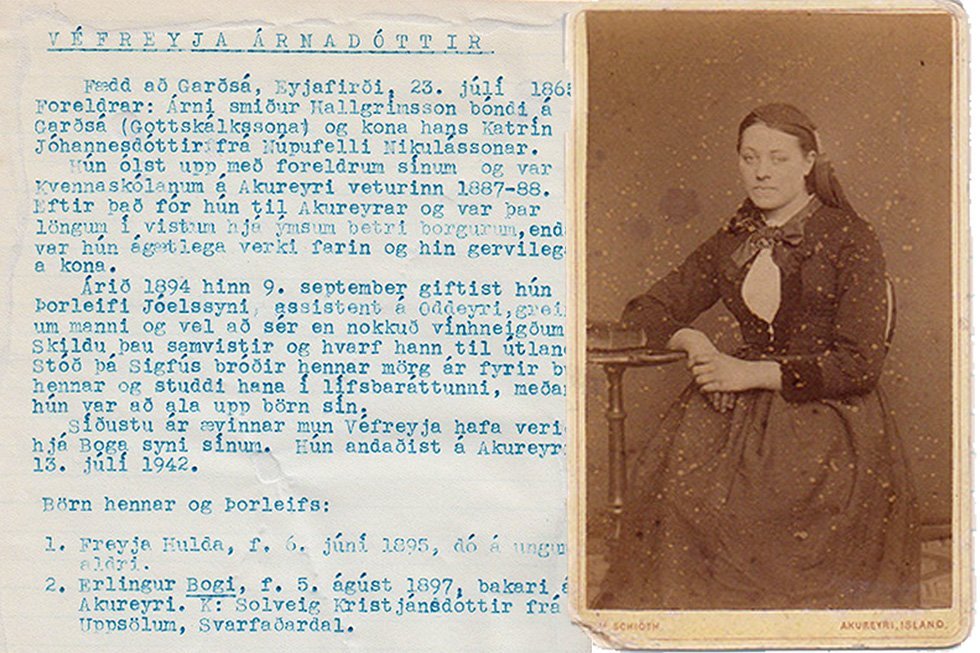 VÉFREYJA ÁRNADÓTTIR
Fædd að Garðsá, Eyjafirði, 23. júlí 186
Foreldrar: Árni smiður Hallgrímsson bóndi á
Garðsá (Gottskálkssona) og kona hans Katrín
Jóhannesdóttir frá Núpufelli Nikulássonar.
Hún ólst upp með foreldrum sínum og var
Kvennaskólanum á Akureyri veturinn 1887-88.
Eftir það fór hún til Akureyrar og var þar
löngum í vistum hjá ýmsum betri borgurum, end
var hún ágætlega verki farin og hin gervileg
a kona.
Árið 1894 hinn 9. september giftist hún
Þorleifi Jóelssyni, assistent á Oddeyri, grei
um manni og vel að sér en nokkuð vínhneigðum
Skildu þau samvistir og hvarf hann til útlan
Stóð þá Sigfús bróðir hennar mörg ár fyrir b
hennar og studdi hana í lífsbaráttunni, meða
hún var að ala upp börn sín.
Síðustu ár ævinnar mun Véfreyja hafa veri
hjá Boga syni sínum. Hún andaðist á Akureyr
13. júlí 1942.
Börn hennar og Þorleifs:
1. Freyja Hulda, f. 6. júní 1895, dó á ungu
aldri.
2. Erlingur Bogi, f. 5. ágúst 1897, bakari á
Akureyri. K: Solveig Kristjánsdóttir frá
Uppsölum, Svarfaðardal.
SCHIÖTH AKUREYRI, ISLAND.